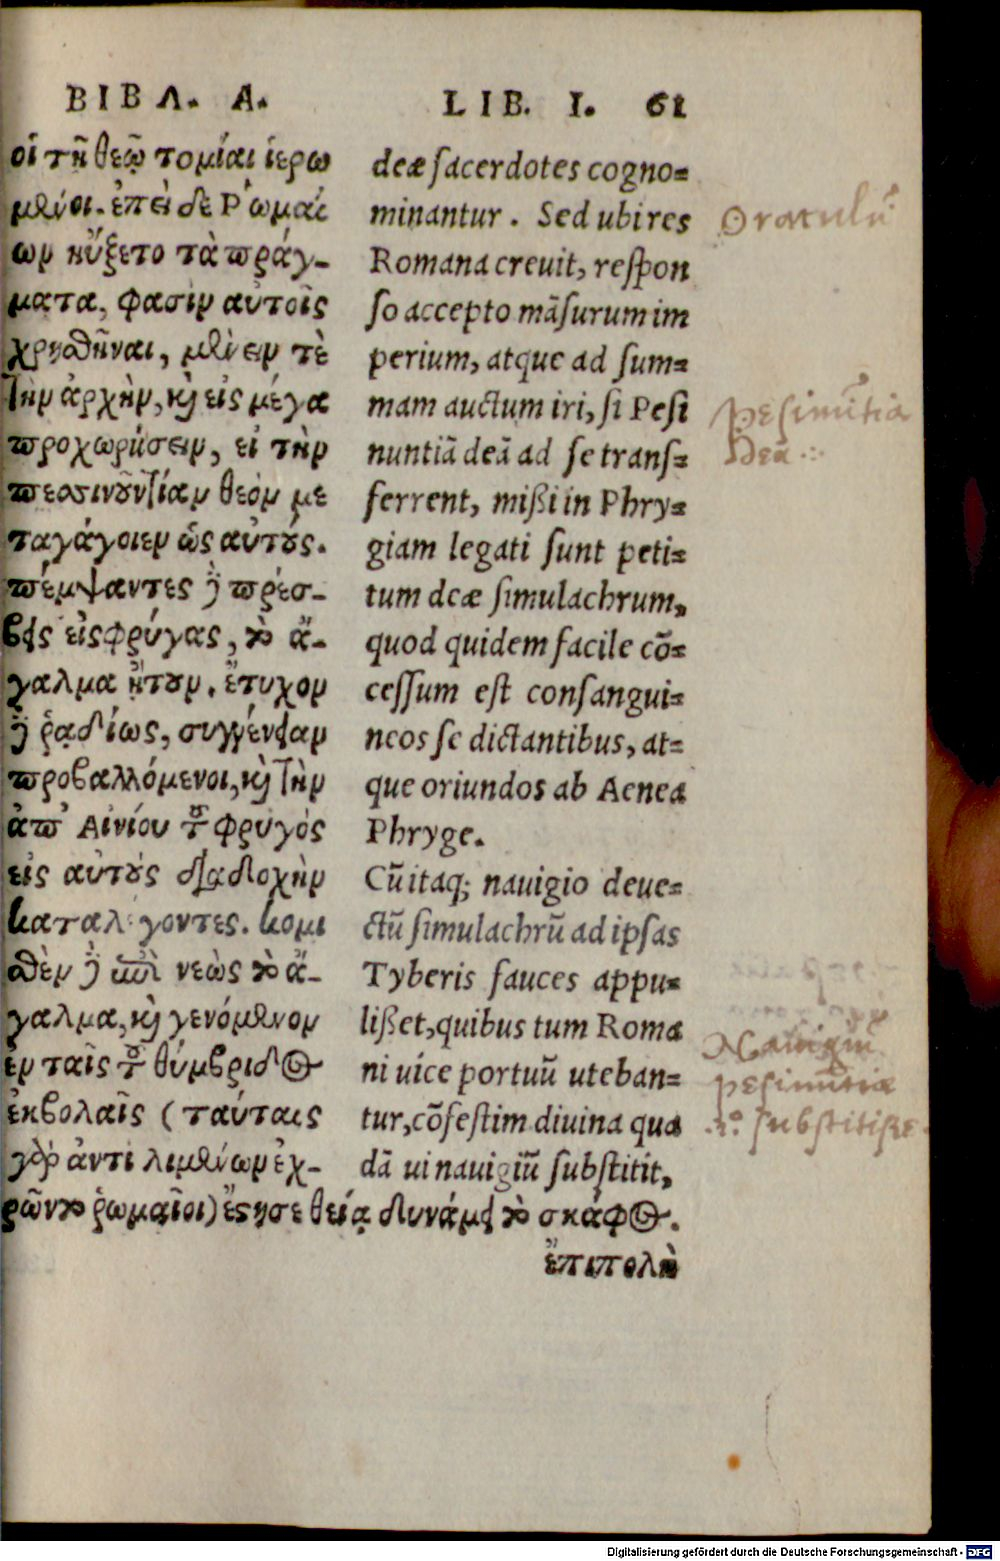 ΒΙΒΛ. Α.
οἱ τῇ θεῷ τομίαι ἱερω
μένοι. ἐπεὶ δε Ῥωμαί
ων ηὔξετο τὰ πράγ-
ματα, φασὶν αὐτοῖς
χρησθῆναι, μένειν τὲ
τὴν ἀρχὴν, κỳ εἰς μέγα
προχωρήσειν, εἰ τὴν
πεσσινοῦντίαν θεὸν με
ταγάγοιεν ὡς αὐτούς.
πέμψαντες ἢ πρέσ-
βεις εἰς φρύγας, τὸ ἄ-
γαλμα ᾔτουν. ἔτυχον
ἢ ῥᾳδίως, συγγένειαν
προβαλλόμενοι, κỳ τὴν
ἀπ’ Αἰνίου τοῦ φρυγός
εἰς αὐτούς διαδοχὴν
καταλέγοντες. κομι
σθὲν ἢ ἐπὶ νεὼς τὸ ἄ-
γαλμα, κỳ γενόμενον
ἐν ταῖς τοῦ θύμβριδος
ἐκβολαῖς (ταύταις
γὰρ ἀντὶ λιμένων ἐχ-
ρῶντο ῥωμαῖοι) ἔστησε θείᾳ δυνάμει τὸ σκάφος.
ἐπιπολὺ
LIB. I. 61
deæ sacerdotes cogno=
minantur. Sed ubi res
Romana creuit, respon
so accepto mãsurum im
perium, atque ad sum=
mam auctum iri, si Pesi
nuntiã deã ad se trans=
ferrent, mißi in Phry=
giam legati sunt peti=
tum deæ simulachrum,
quod quidem facile cõ=
cessum est consangui=
neos se dictantibus, at=
que oriundos ab Aenea
Phryge.
Cũ itaq; nauigio deue=
ctũ simulachrũ ad ipsas
Tyberis fauces appu=
lißet, quibus tum Roma
ni uice portuũ uteban=
tur, cõfestim diuina qua
dã ui nauigiũ substitit,
Oraculũ
Pesinũtia
Dea
Nauigiũ
pesinũtiæ
substitisse.
Digitalisierung gefördert durch die Deutsche Forschungsgemeinschaft - DFG